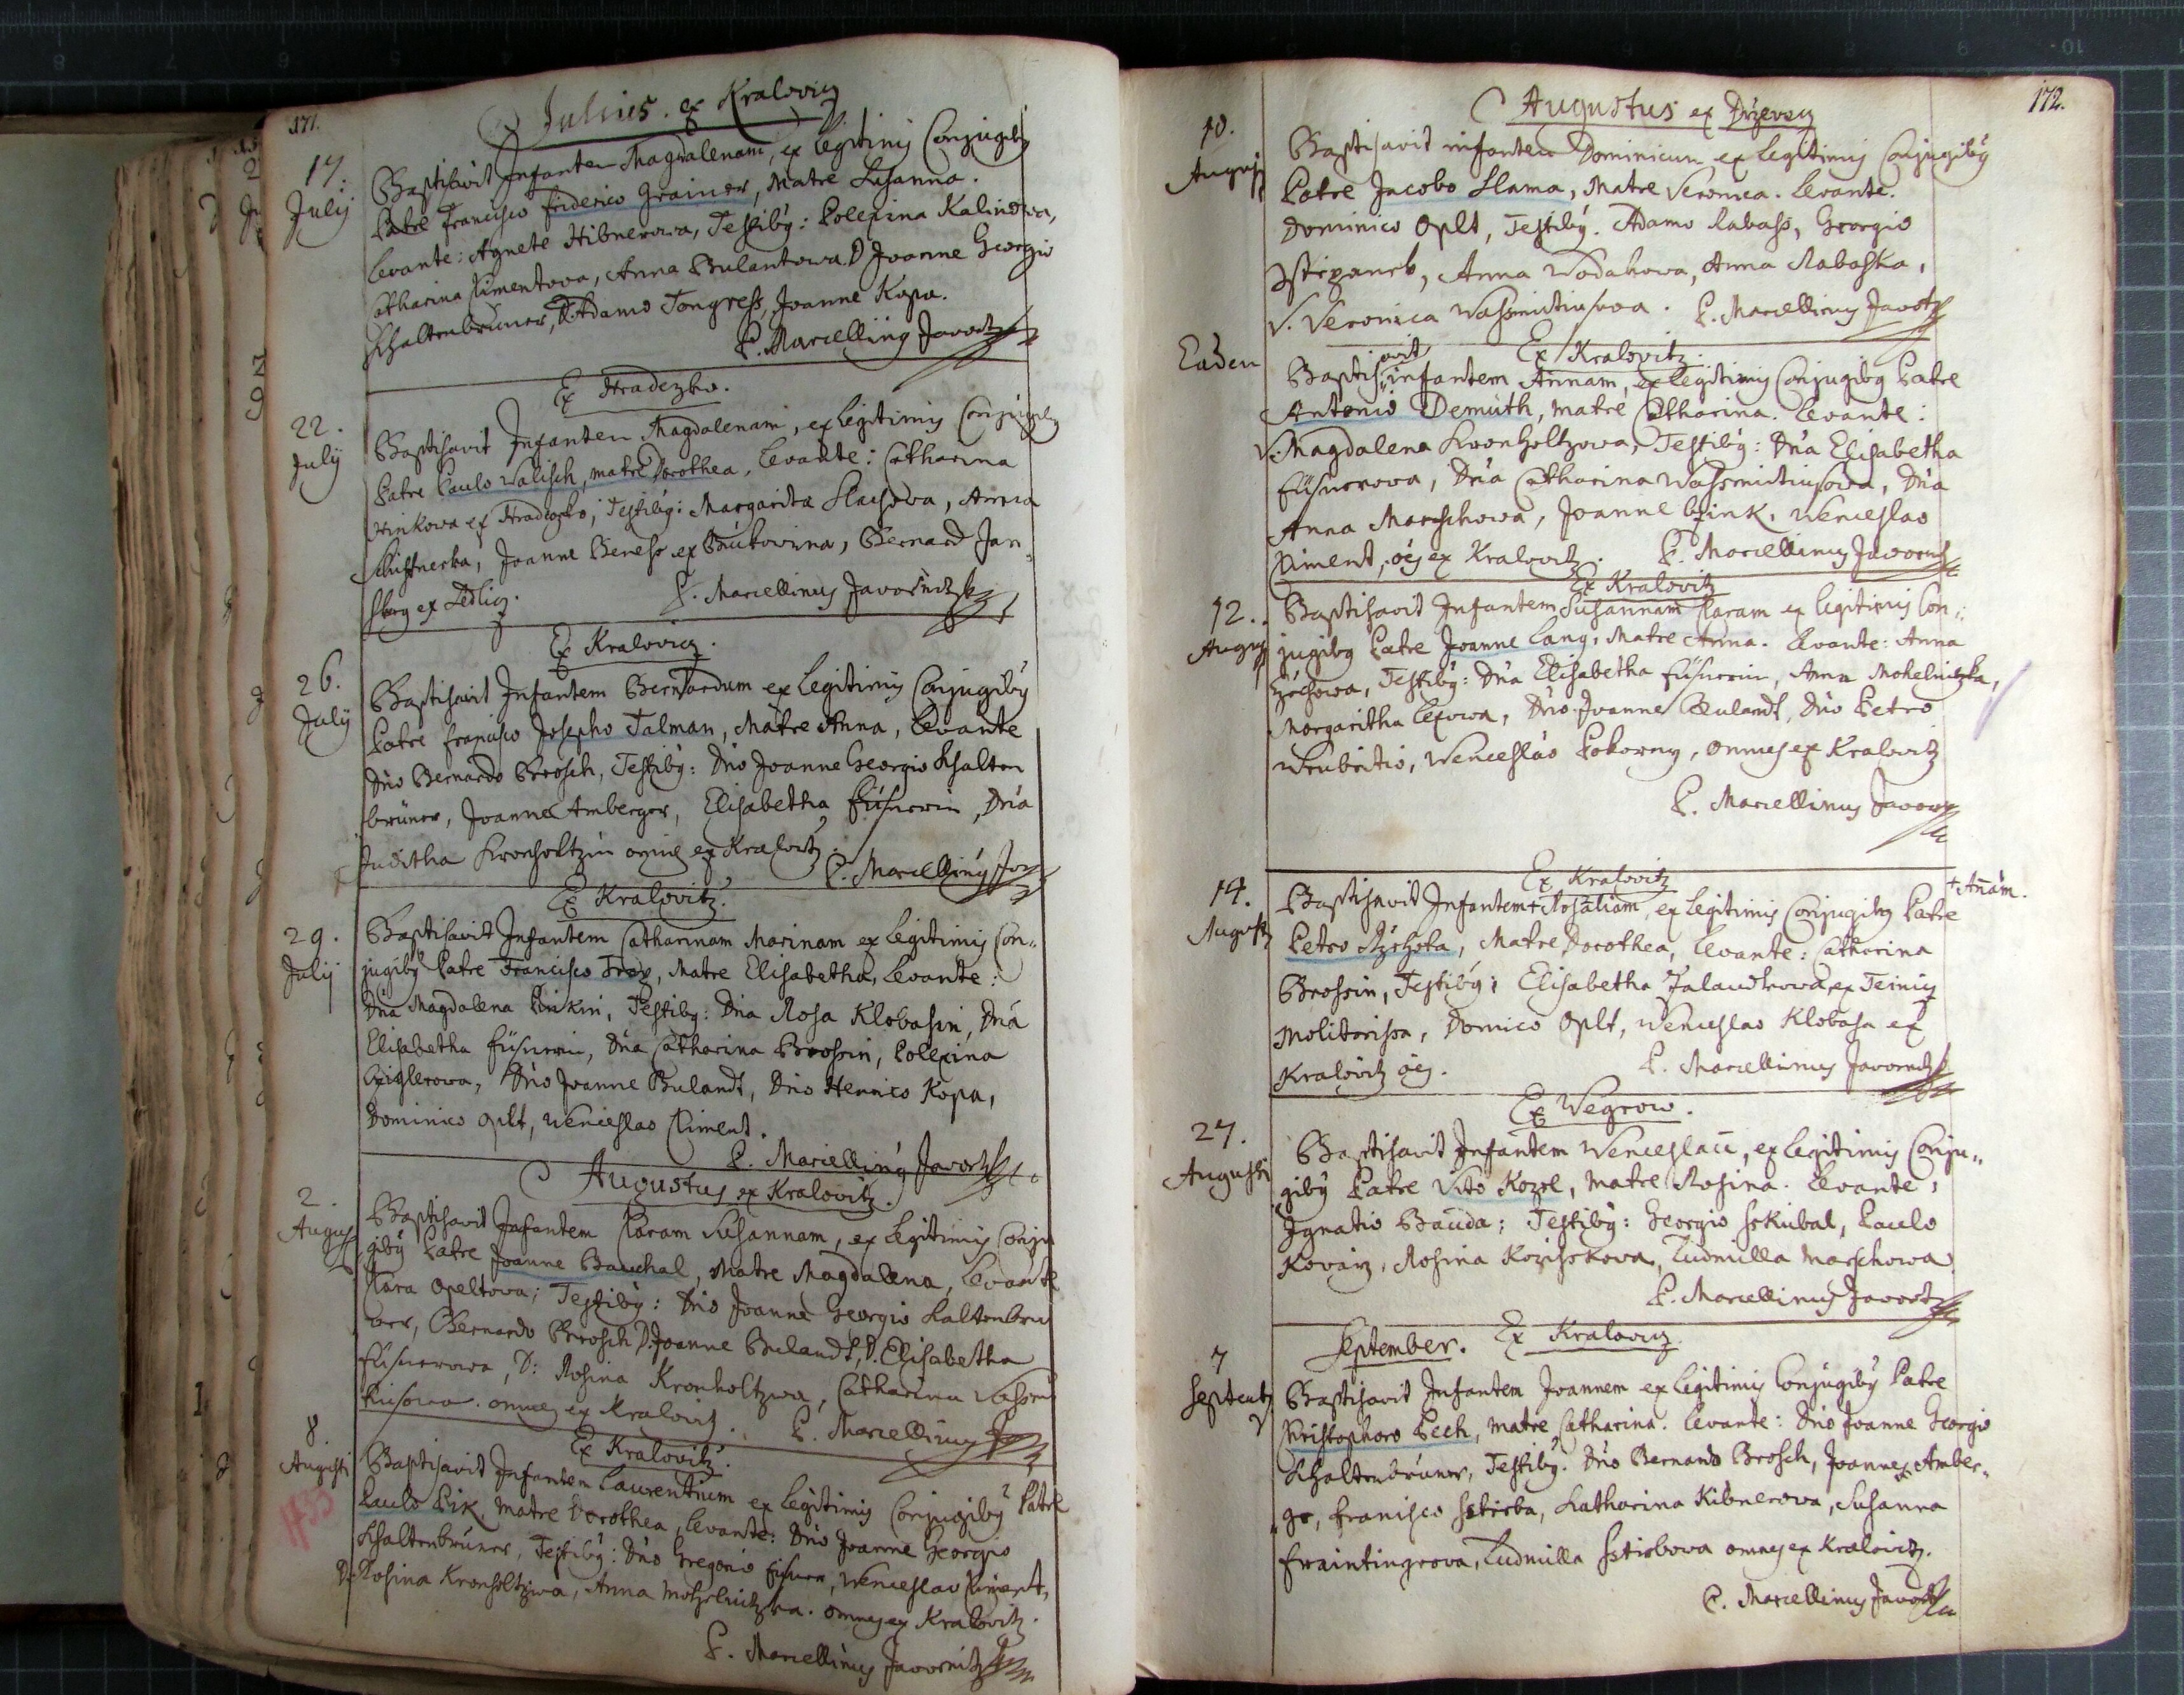 171.
Julius. ex Kralovicz
17.
July
Baptisavit Infantem Magdalenam, ex legitimis Conjugiby
Patre Francisco Friderico Grainer, Matre Susanna.
Levante: Agnete Hibnerowa, Testiby: Polexina Kalinowa,
Catharina Climentova, Anna Bulantowa D Joanne Georgio
Schaltenbruner, D. Adamo Tongress, Joanne Kopa.
P. Marcelliny
Ex Hradezko.
22.
July
Baptisavit Infantem Magdalenam, ex legitimis
Patre Paulo Walisch, matre Dorothea, Levante: Catharina
Hinkowa ex Hradezko, Testiby: Margarita Slachova, Anna
Joanne Beness ex Bukowina, Bernard Jan
ex Zedlicz.
P. Marcellinus Javornitzky
Ex Kralovicz.
26.
July
Baptisavit Infantem Bernardum ex legitimis Conjugiby
Patre Francisco Josepho Talman, Matre Anna, Levante
Dno Bernardo Brosch, Testiby: Dno Joanne Georgio Schalten
bruner, Joanne Amberger, Elisabetha Dna
Juditha Kronholtzin ex Kralovitz.
P. Marcelliny
Ex Kralovitz.
29.
July
Baptisavit Infantem Catharinam Marinam ex legitimis Con
jugiby Patre Francisco Matre Elisabetha, Levante:
Dna Magdalena Testiby: Dna Rosa Klobasin, Dna
Elisabetha Dna Catharina Brossin, Polexina
Dno Joanne Bulandt, Dno Henrico Kopa,
Dominico Oplt, Wenceslao Climent.
P. Marcelliny
Augustus ex Kralovitz.
2.
August
Baptisavit Infantem Claram Susannam, ex legitimis Conju
giby Patre Joanne Bauchal, Matre Magdalena, Levante
Clara Opeltowa; Testiby: Dno Joanne Georgio Kaltenbru
ner, Bernardo Brosch D. Joanne Bulandt, D. Elisabetha
D: Rosina Kronholtzwa, Catharina
omnes ex Kralovitz.
P. Marcellinus
Ex Kralovitz.
8.
Augusti
Baptisavit Infantem Laurentium ex legitimis Conjugiby Patre
Paulo Pik, matre Dorothea, Levante: Dno Joanne Georgio
Schaltenbruner, Testiby: Dno Gregorio Wenceslao Climent,
D: Rosina Kronholtzwa, Anna Mohelnitzka. omnes ex Kralovitz.
P. Marcellinus Javornitzky
172.
Augustus ex Drzevcz
10.
August
Baptisavit infantem Dominicum ex legitimis Conjugiby
Patre Jacobo Slama, Matre Veronica. Levante.
Dominico Oplt, Testiby. Adamo Rabass, Georgio
Anna Wodakowa, Anna Rabaska,
V. Veronica
P. Marcellinus
Ex Kralovitz.
Eadem
Baptisavit infantem Annam, ex legitimis Conjugiby Patre
Antonio Demuth, matre Catharina. Levante:
V. Magdalena Kronholtzowa, Testiby: Dna Elisabetha
Dna Catharina Dna
Anna Marschowa, Joanne Wenceslao
Climent, ex Kralovitz.
P. Marcellinus
Ex Kralovitz
12.
August
Baptisavit Infantem Susannam Claram ex legitimis Con
jugiby Patre Joanne Lang, Matre Anna. Levante: Anna
Testiby: Dna Elisabetha Anna Mohelnitzka,
Margaritha Lexowa, Dno Joanne Bulandt, Dno Petro
Wenceslao Pokorny, omnes ex Kralovitz
P. Marcellinus
Ex Kralovitz
14.
August
Baptisavit Infantem + Rosaliam, ex legitimis Conjugiby Patre
+ Anam.
Petro Matre Dorothea, Levante: Catharina
Brossin, Testiby; Elisabetha ex Teinicz
Molitorissa, Domico Oplt, Wenceslao Klobasa ex
Kralovitz
P. Marcellinus Javornitzky
Ex Wegrow.
27.
Augusti
Baptisavit Infantem Wenceslau, ex legitimis Conju
giby Patre Vito Kozel, Matre Rosina. Levante,
Ignatio Bauda; Testiby: Georgio Sskubal, Paulo
Kovarz, Rosina Kozisskova, Ludmilla Marschowa.
P. Marcellinus
September. Ex Kralovicz
7
Baptisavit Infantem Joannem ex legitimis Conjugiby Patre
Christophoro Pech, matre Catharina. Levante: Dno Joanne Georgio
Schaltenbruner, Testiby. Dno Bernardo Brosch, Joanne Amber
ger, Francisco Sstirba, Katharina Kibnerova, Susanna
Fraintingrova, Ludmilla Sstirbova omnes ex Kralovitz.
P. Marcellinus